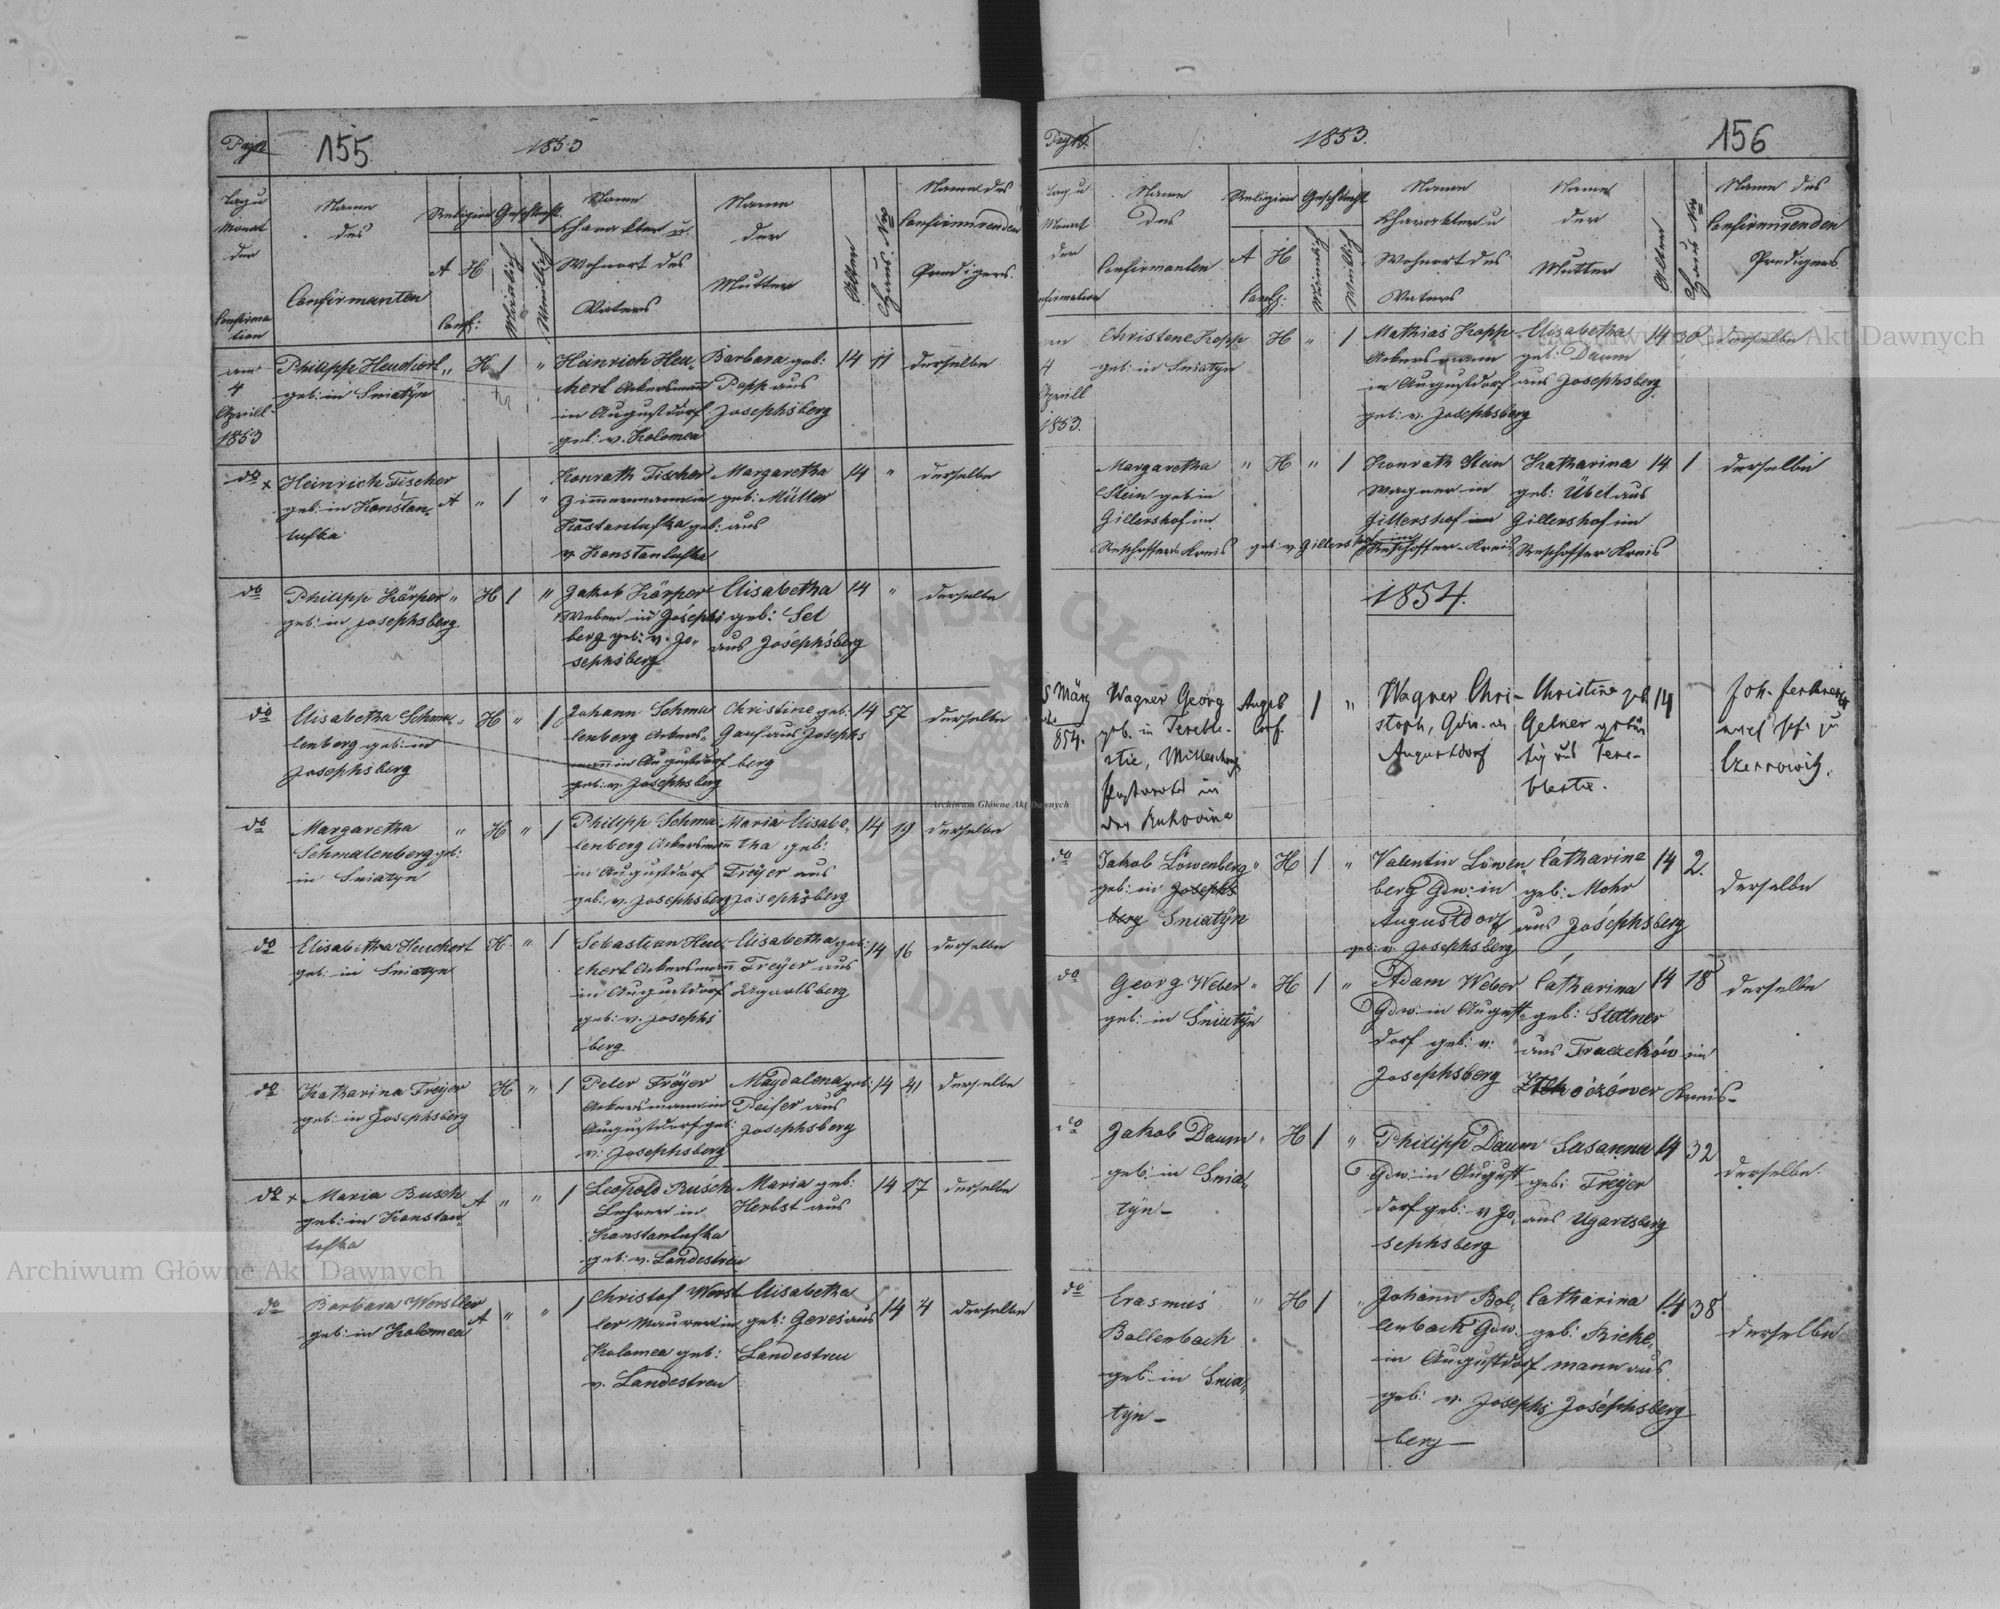 155
1853
Tag u
Monat
der
Confirma
tion
Name
des
Confirmanten
Religion
A H
Conf:
Geschlecht
Männlich
Weiblich
Name
Charakter u.
Wohnort des
Vaters
Name
der
Mutter
Alter
Haus Nro
Name des
Confirmirenden
Predigers.
am
4
Aprill
1853
Philipp Heuchert
geb: in Sniatyn
" H 1 "
Heinrich Heu-
chert Ackersmann
in Augustdorf
geb: v. Kolomea
Barbara geb:
Popp aus
Josephsberg
14 11 derselbe
do x Heinrich Fischer
geb: in Konstan-
tufka
A " 1 "
Konrath Fischer
Zimmermann in
Kostantufka geb:
v. Konstantufka
Margaretha
geb: Müller
aus
14 " derselbe
do Philipp Körper
geb: in Josephsberg
" H 1 "
Jakob Körper
Weber in Josephs
berg geb: v. Jo-
sephsberg
Elisabetha
geb: Set
aus Josephsberg
14 " derselbe
do Elisabetha Schma-
lenberg geb: in
Josephsberg
" H " 1
Johann Schma
lenberg Ackers-
mann in Augustdorf
geb: v. Josephsberg
Christine geb:
Gauf aus Josephs
berg
14 57 derselbe
do Margaretha
Schmalenberg geb:
in Sniatyn
" H " 1
Philipp Schma
lenberg Ackersmann
in Augustdorf
geb: v. Josephsberg
Maria Elisabe-
tha geb:
Freÿer aus
Josephsberg
14 19 derselbe
do Elisabetha Heuchert
geb: in Sniatyn
H " 1
Sebastian Heu-
chert Ackersmann
in Augustdorf
geb: v. Josephs
berg
Elisabetha geb:
Freÿer aus
Ugartsberg
14 16 derselbe
do Katharina Freÿer
geb: in Josephsberg
H " 1
Peter Freÿer
Ackersmann in
Augustdorf geb:
v: Josephsberg
Magdalena geb:
Peifer aus
Josephsberg
14 41 derselbe
do x Maria Busch
geb: in Konstan-
tufka
A " " 1
Leopold Busch
Lehrer in
Konstantufka
geb: v. Landestreu
Maria geb:
Herbst aus
14 17 derselbe
do Barbara Werstler
geb: in Kolomea
A " " 1
Christof Werst
ler Maurer in
Kolomea geb:
v. Landestreu
Elisabetha
geb: Geres aus
Landestreu
14 4 derselbe
156
1853.
Tag u
Monat
der
Name
des
Confirmanten
Religion
A H
Conf:
Geschlecht
Männlich
Weiblich
Name
Charakter u
Wohnort des
Vaters
Name
der
Mutter
Alter
Haus Nro
Name des
Confirmirenden
Predigers
am
4
Aprill
1853.
Christene Kopp
geb: in Sniatyn
H " 1
Mathias Kopp
Ackersmann
in Augustdorf
geb: v. Josephsberg
Elisabetha
geb: Daum
aus Josephsberg.
14 30 derselbe
Margaretha
Stein geb in
Gillershof im
Reschoffer Kreis
" H " 1
Konrath Stein
Wagner in
Gillershof im
Reschoffer-Kreis
geb: v. Gillershof im
Katharina
geb: Übel aus
Gillershof im
Reschoffer Kreis
14 1 derselbe
1854.
März
854.
Wagner Georg
geb. in Tereble-
stie,
in
der Bukovina
Augsb
Conf.
1 "
Wagner Chri-
stoph, Gdw. in
Augustdorf
Christine geb
Gelner gebür
tig aus Tere-
blestie.
14
Joh.
zu
Czernowitz.
do Jakob Löwenberg
geb: in Josephs
berg Sniatÿn
" H 1 "
Valentin Löwen-
berg Gdw: in
Augustdorf
geb: v: Josephsberg
Catharina
geb: Mohr
aus Josephsberg
14 2. derselbe
do Georg Weber
geb: in Sniatÿn
" H 1 "
Adam Weber
Gdw: in August-
dorf geb: v:
Josephsberg
Catharina
geb: Stettner
aus im
Kreis-
14 18 derselbe
do Jakob Daum
geb: in Snia-
tÿn-
" H 1 "
Philipp Daum
Gdw: in August
dorf geb: v Jo-
sephsberg
Susanna
geb: Freÿer
aus Ugartsberg
14 32 derselbe.
do Erasmus
Bollenbach
geb: in Snia-
tÿn-
" H 1 "
Johann Bol-
lenbach Gdw:
in Augustdorf
geb: v. Josephs
berg
Catharina
geb: Rieke-
mann aus
Josephsberg
14 38 derselbe
Archiwum Główne Akt Dawnych
Archiwum Główne Akt Dawnych
Archiwum Główne Akt Dawnych